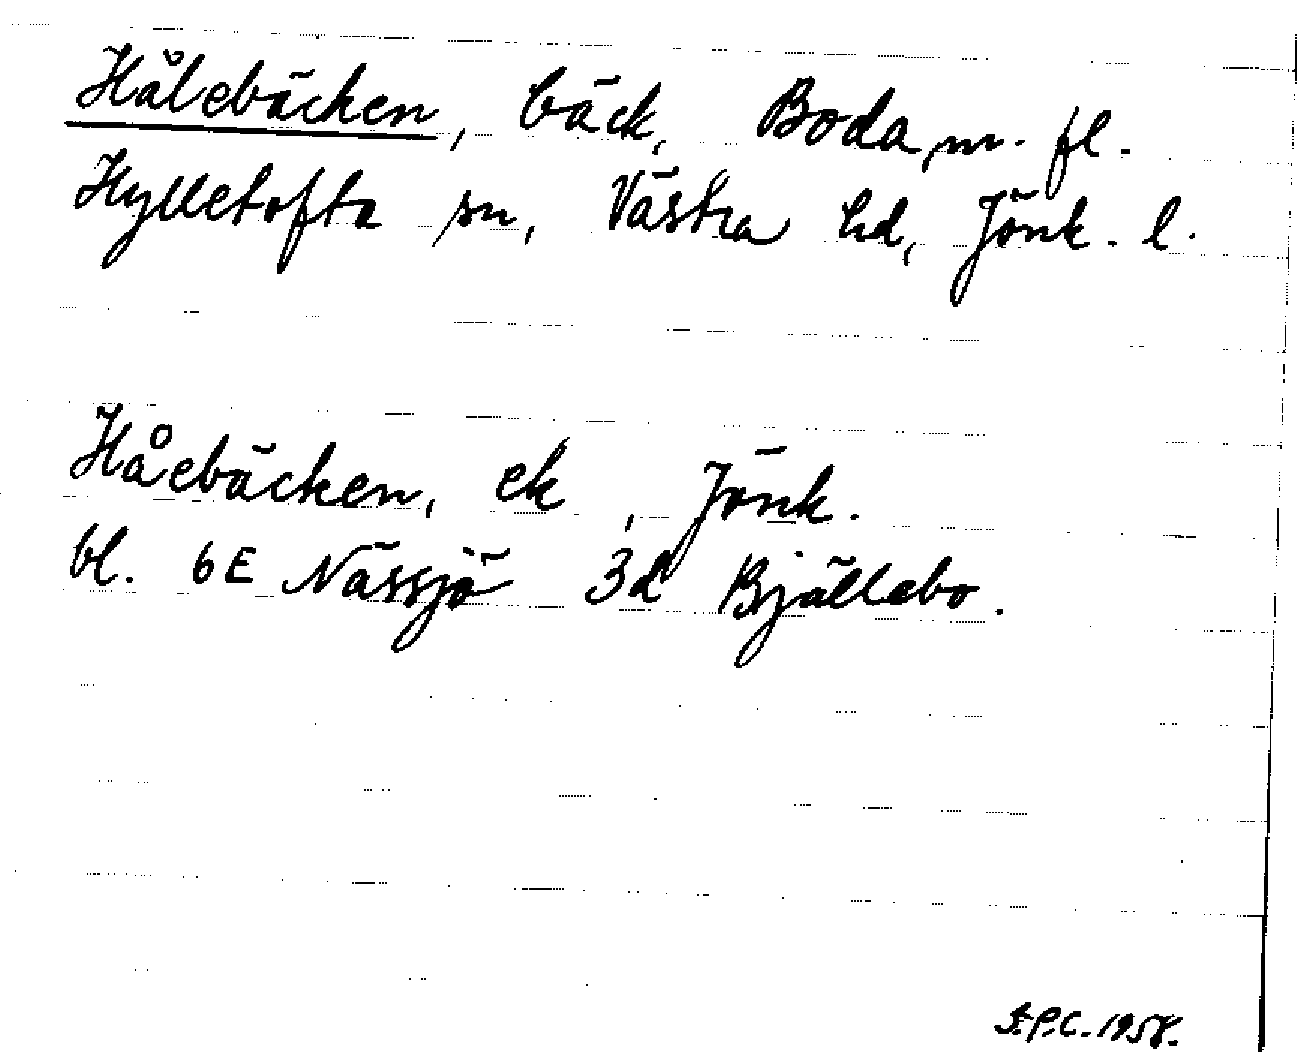 Hålebäcken, bäck, Boda m. fl.
Hylletofta sn, Västra hd, Jönk. l.
Håebäcken, ek, Jönk.
bl. 6E Nässjö 3d Bjällebo.
P.C. 1958.